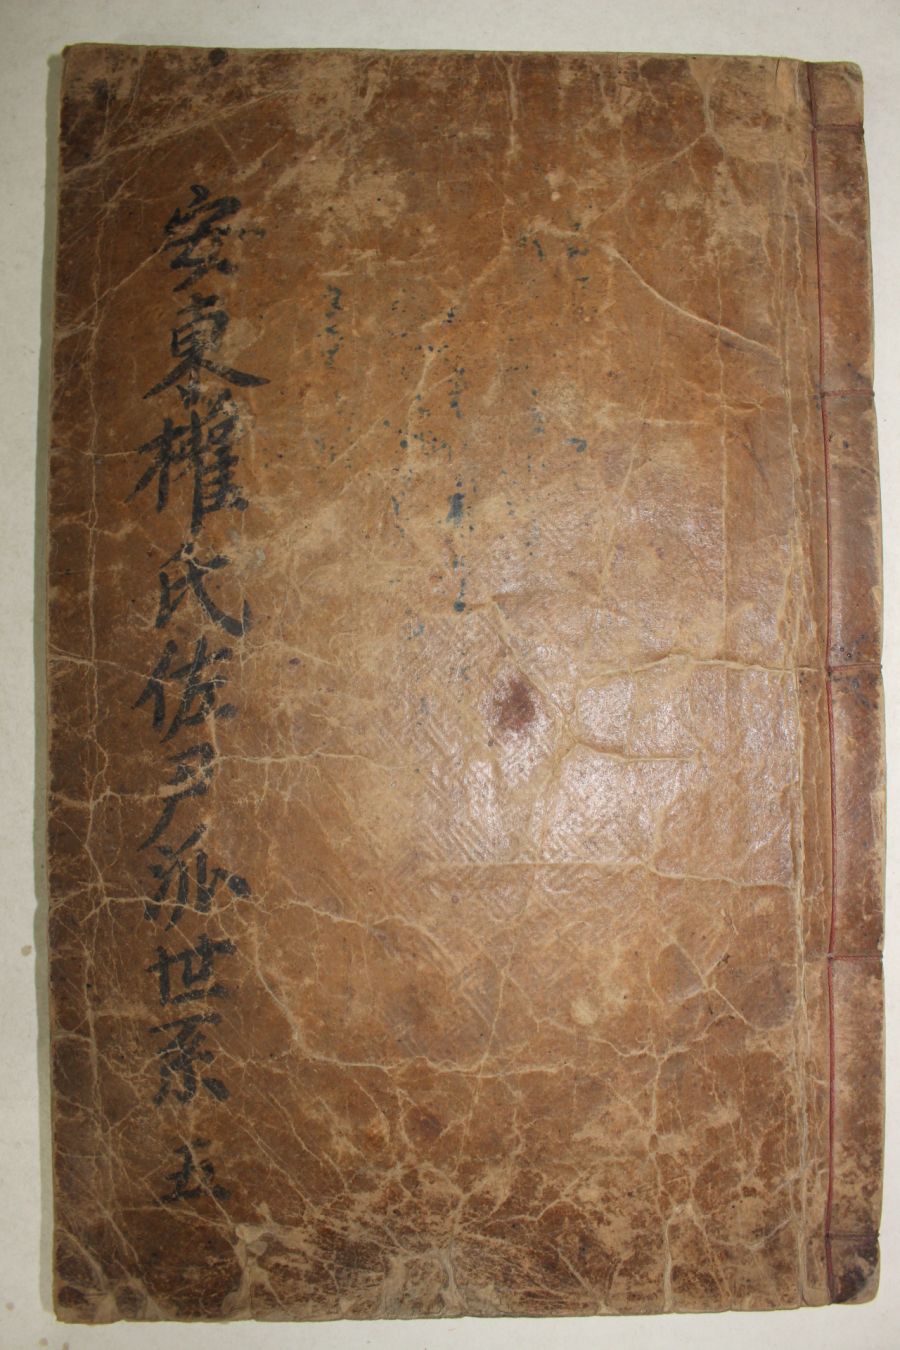 安東權氏佐尹派世系 五